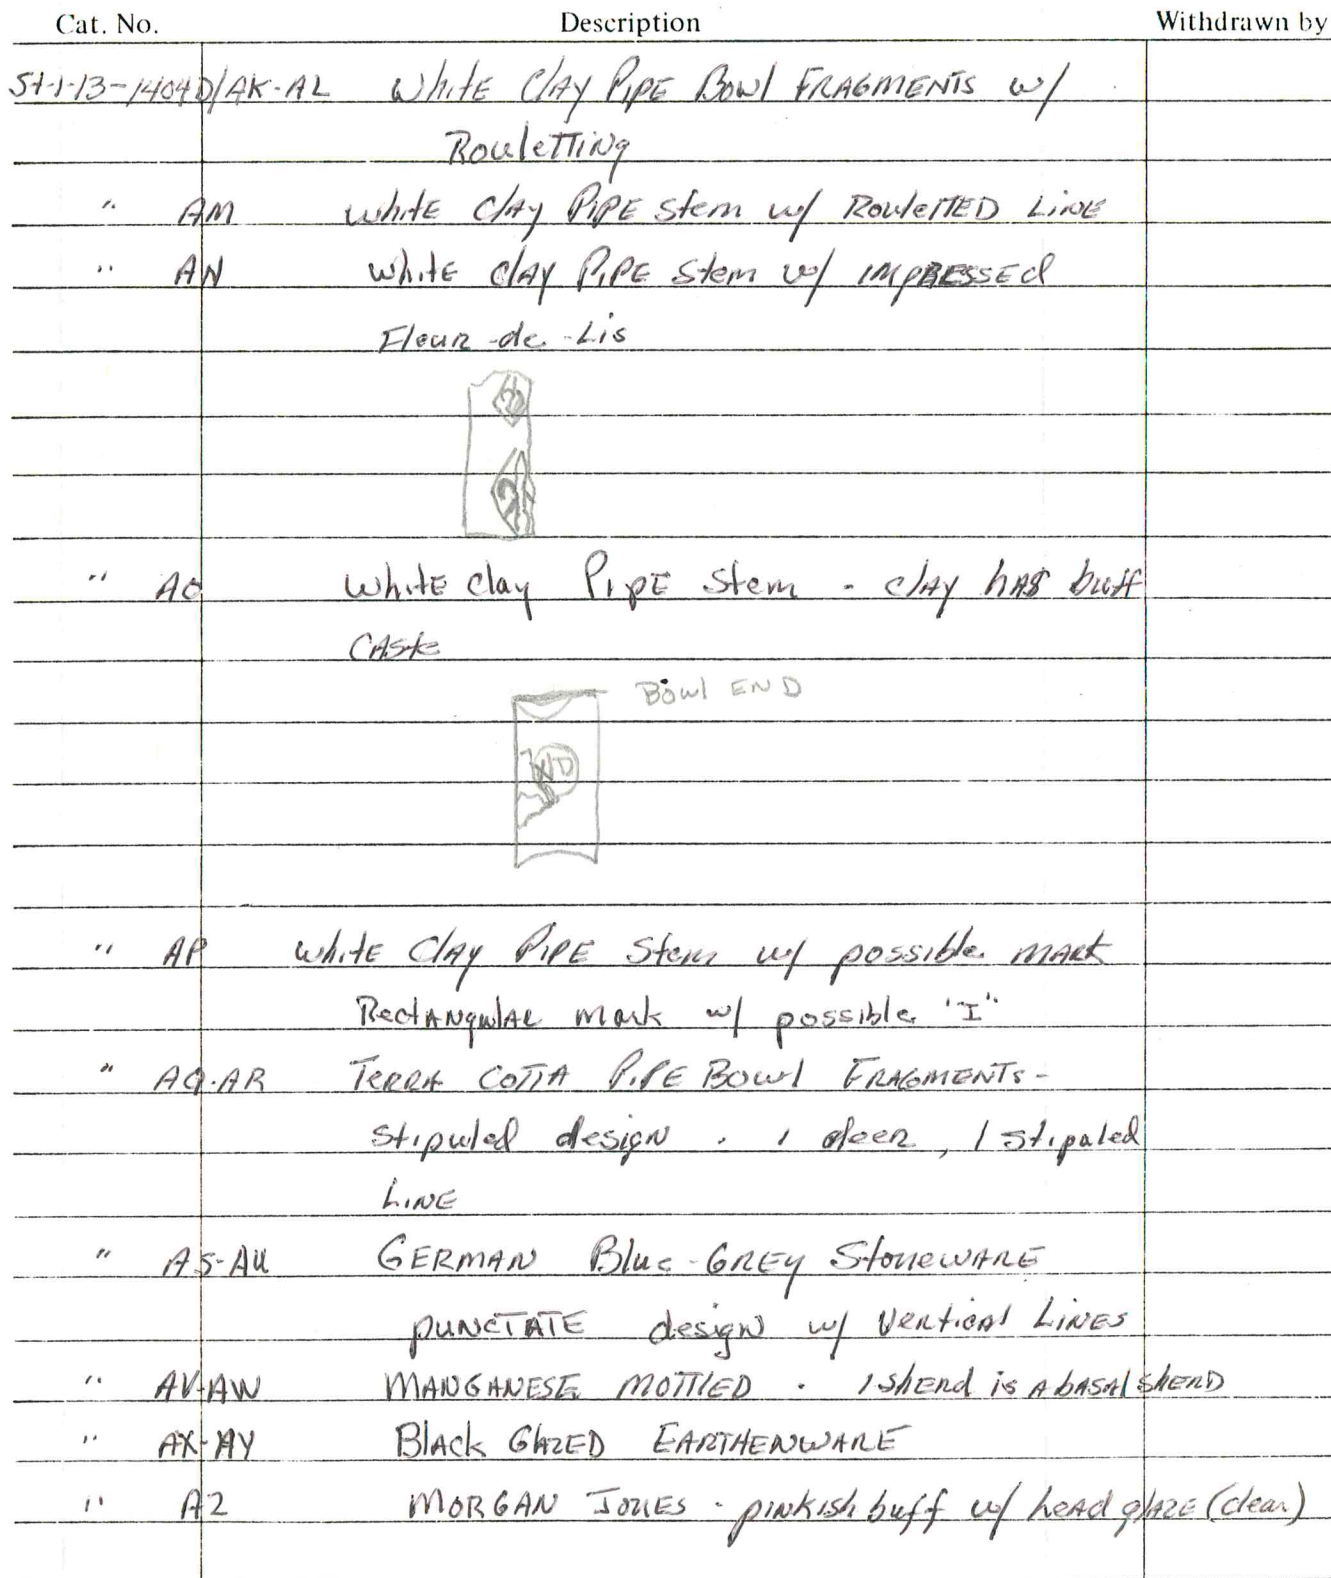 Cat. No. Description Withdrawn by
St-1-13-1404D/AK-AL White Clay Pipe Bowl Fragments w/
Rouletting
" AM White Clay Pipe Stem w/ Rouletted Line
" AN White Clay Pipe Stem w/ impressed
Fleur-de-Lis
" AO White Clay Pipe Stem - clay has buff
caste
Bowl END
" AP White Clay Pipe Stem w/ possible mark
Rectangular mark w/ possible "I"
" AQ-AR Terra Cotta Pipe Bowl Fragments-
Stipuled design . 1 deer, 1 stipaled
Line
" AS-AU German Blue-Grey Stoneware
punctate design w/ Vertical Lines
" AV-AW Manganese Mottled . 1 sherd is a basal sherd
" AX-AY Black Glazed Earthenware
" AZ Morgan Jones - pinkish buff w/ lead glaze (clear)